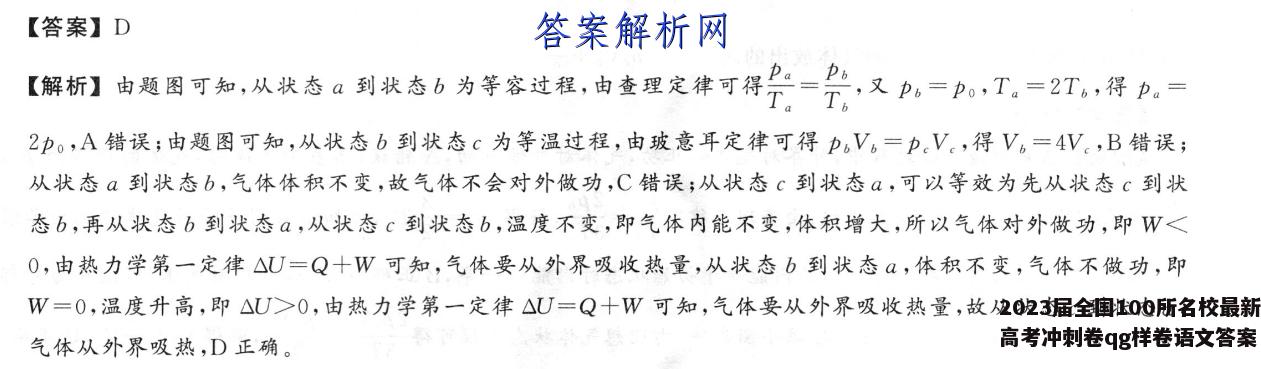 【答案】D
答案解析网
【解析】由题图可知,从状态 a 到状态 b 为等容过程,由查理定律可得 p_a/T_a = p_b/T_b ,又 p_b=p_0,T_a=2T_b,得 p_a=
2p_0,A 错误;由题图可知,从状态 b 到状态 c 为等温过程,由玻意耳定律可得 p_bV_b=p_cV_c,得 V_b=4V_c,B 错误;
从状态 a 到状态 b,气体体积不变,故气体不会对外做功,C 错误;从状态 c 到状态 a,可以等效为先从状态 c 到状
态 b,再从状态 b 到状态 a,从状态 c 到状态 b,温度不变,即气体内能不变,体积增大,所以气体对外做功,即 W<
0,由热力学第一定律 ΔU=Q+W 可知,气体要从外界吸收热量,从状态 b 到状态 a,体积不变,气体不做功,即
W=0,温度升高,即 ΔU>0,由热力学第一定律 ΔU=Q+W 可知,气体要从外界吸收热量,故从
气体从外界吸热,D 正确。
2023届全国100所名校最新
高考冲刺卷qg样卷语文答案